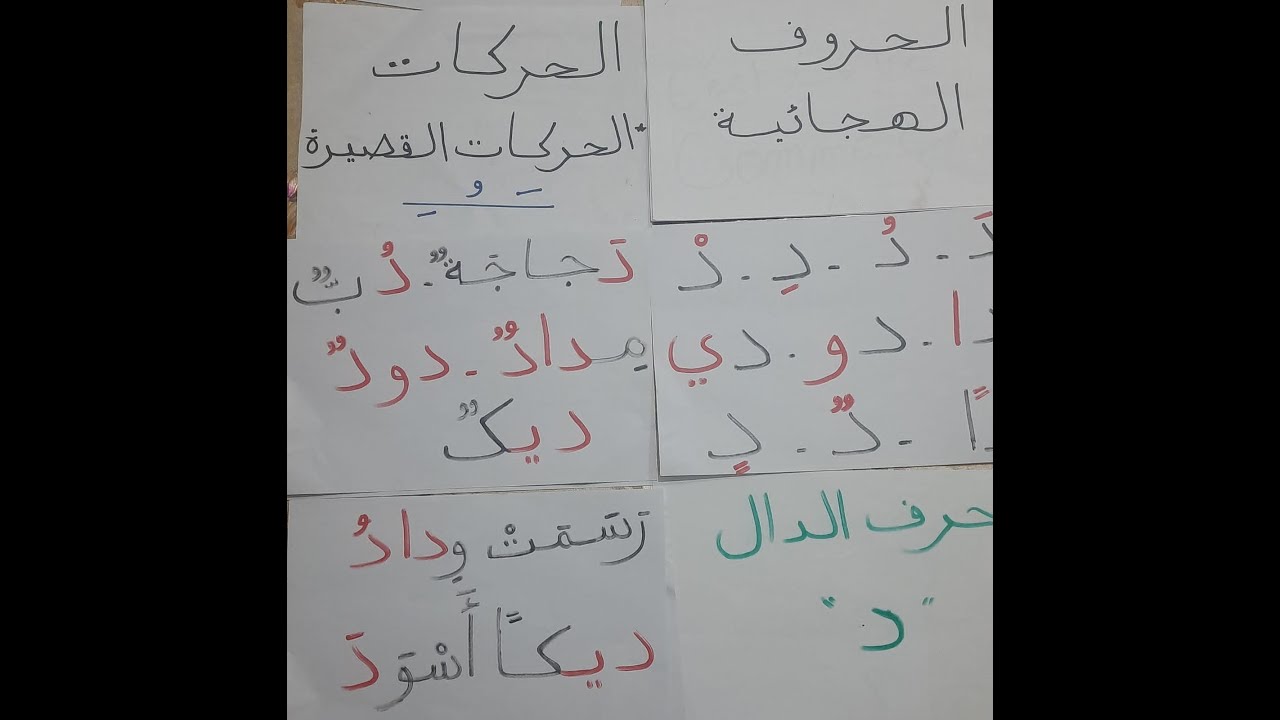 الحروف
الهجائية
الحركات
*الحركات القصيرة
ـَ ـُ ـِ
دَ - دُ - دِ - دْ
دا - دو - دي
دًا - دٌ - دٍ
دَجاجَةٌ - دُبٌّ
مِدادٌ - دودٌ
ديكٌ
حرف الدال
"د"
رَسَمَتْ وِدادُ
ديكًا أَسْوَدَ